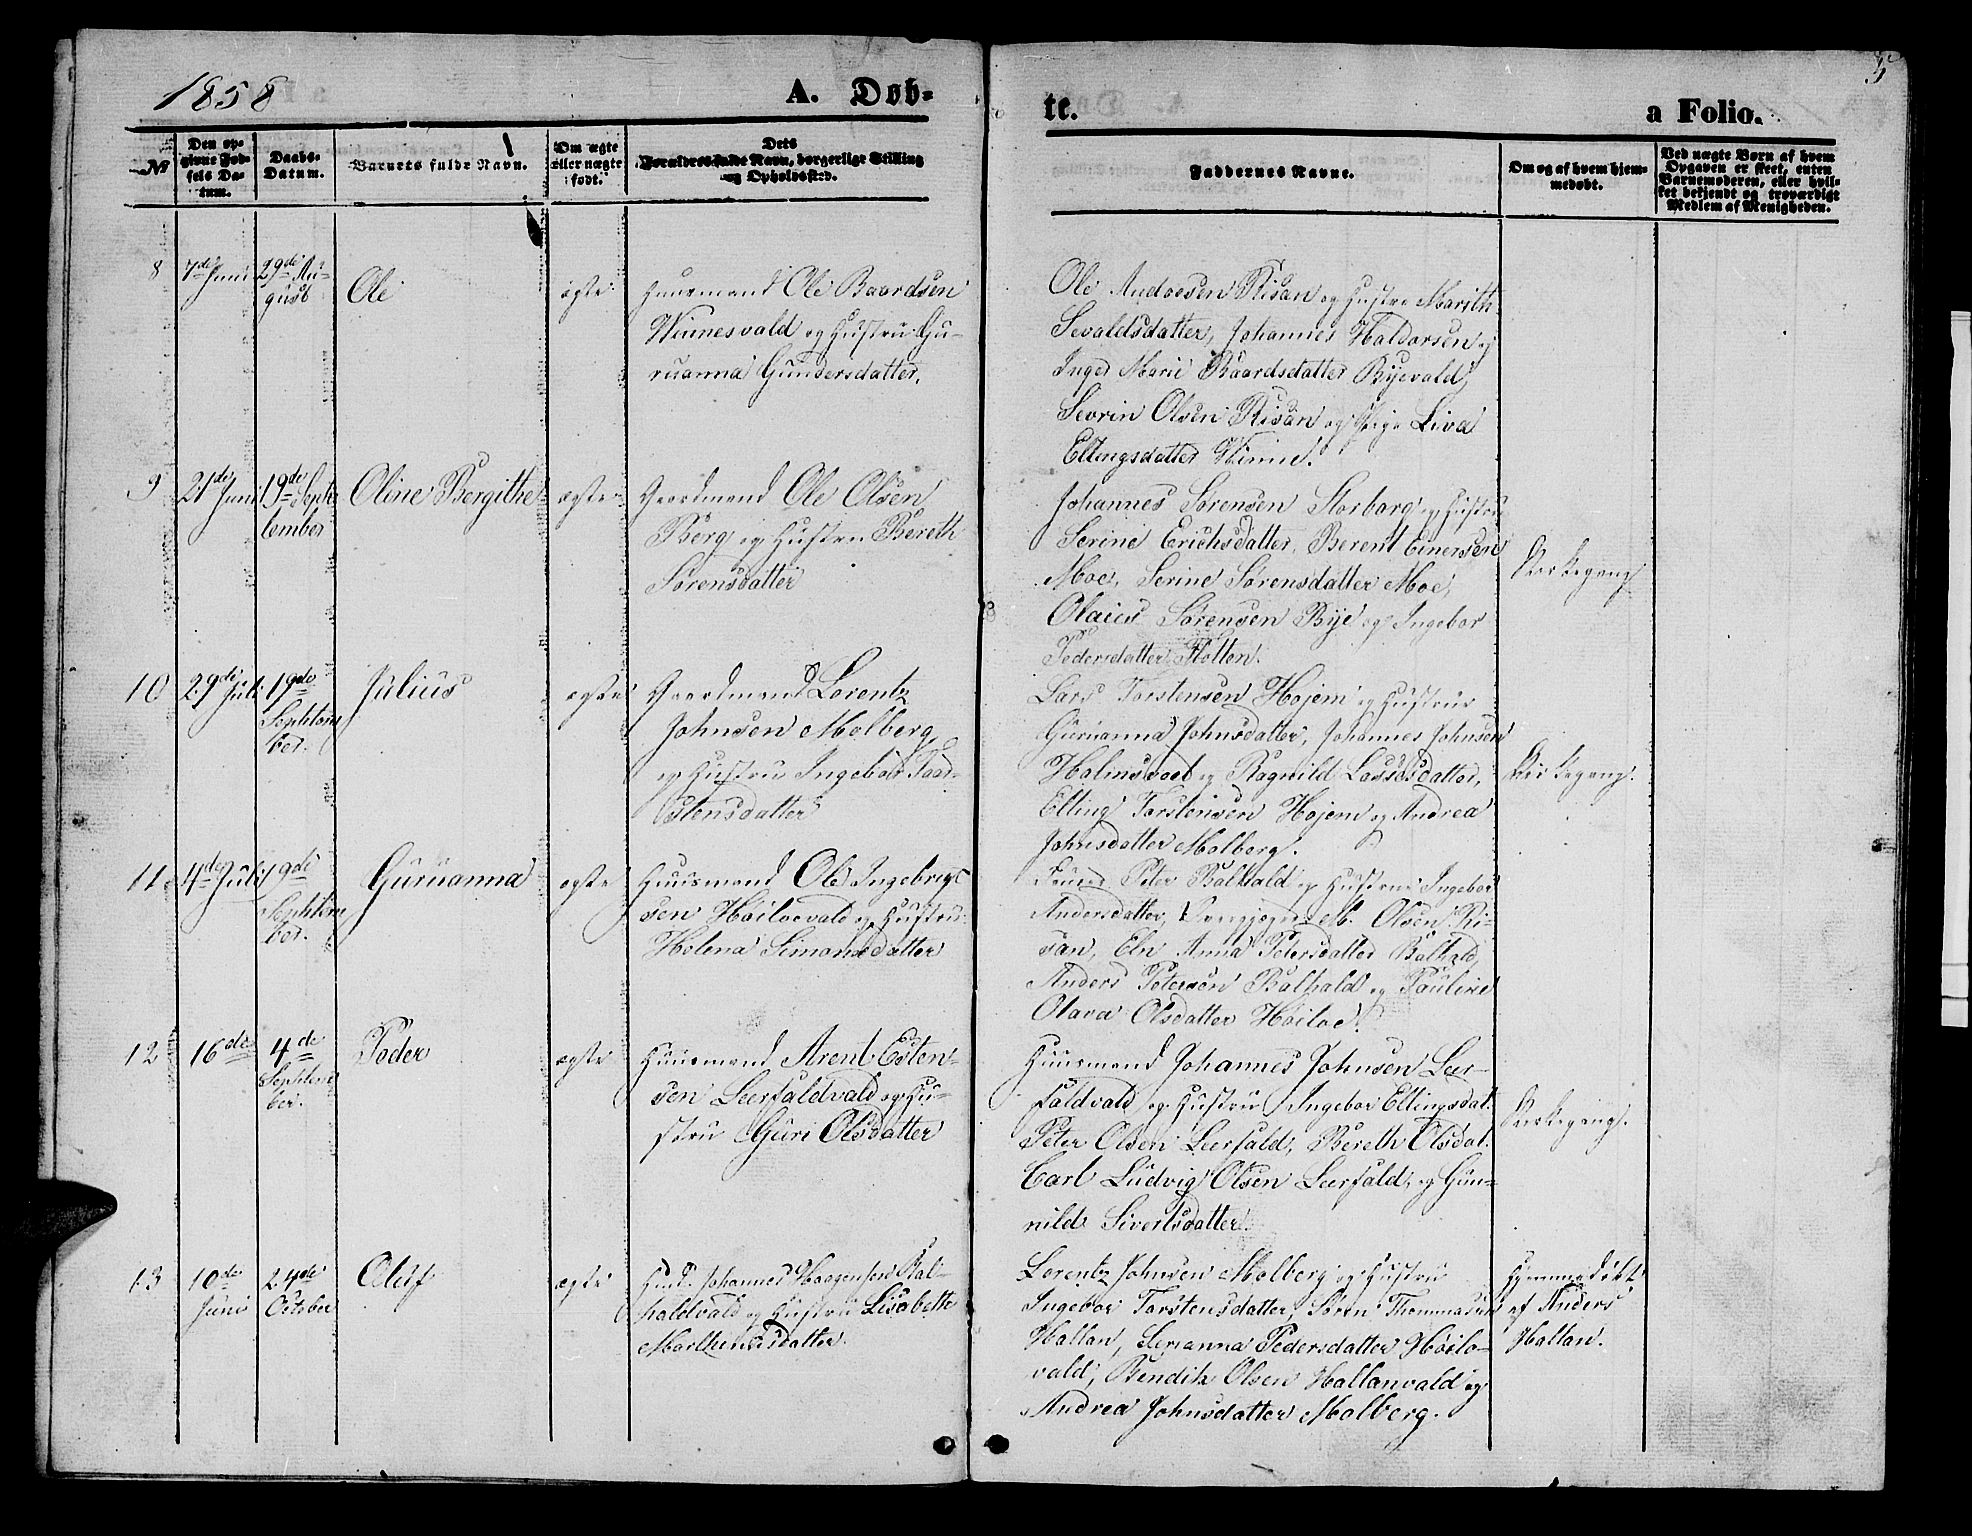 1858
A. Døb-
te.
a Folio.
3
№
Den op-
givne Fød-
sels Da-
tum.
Daabs-
Datum.
Barnets fulde Navn.
Om ægte
eller uægte
født.
Dets
Forældres fulde Navn, borgerlige Stilling
og Opholdssted.
Faddernes Navne.
Om og af hvem hjem-
medøbt.
Ved uægte Børn af hvem
Opgaven er skeet, enten
Barnemoderen, eller hvil-
ket bekjendt og troværdigt
Medlem af Menigheden.
8
7de Juni
29de Au-
gust
Ole
ægte
Huusmand Ole Baardsen
Winnesvald og Hustru Gu-
ruanna Gundersdatter.
Ole Andersen Risan og Hustru Marith
Sevaldsdatter, Johannes Haldorsen og
Inger Marie Baardsdatter Byevald,
Sevrin Olsen Risan og Pige Liva
Ellingsdatter Winne.
9
21de Juni
19de Sept-
tember
Oline Bergithe
ægte
Gaardmand Ole Olsen
Berg og Hustru Bereth
Sørensdatter
Johannes Sørensen Storborg og Hustru
Serine Erichsdatter, Berent Einersen
Moe, Serine Sørensdatter Moe,
Olaus Sørensen Bye og Ingebor
Pedersdatter Flotten.
Kirkegang
10
29de Juli
19de
Septem
ber.
Julius
ægte
Gaardmand Lorentz
Johnsen Molberg
og Hustru Ingebor Taar-
stensdatter
Lars Torstensen Hojem og Hustru
Guruanna Johnsdatter, Johannes Johnsen
Holmsvet og Ragnild Lassesdatter,
Elling Torstensen Hojem og Andrea
Johnsdatter Molberg.
Kirkegang.
11
4de Juli
19de
Septem
ber.
Guruanna
ægte
Huusmand Ole Ingebrigt
sen Høiloevald og Hustru
Helena Simonsdatter
Peter Balhald og Hustru Ingebor
Andersdatter, M. Olsen Ri-
san, Eln Anna Petersdatter Balhald,
Anders Petersen Balhald og Pauline
Olava Olsdatter Høiloe.
12
16de
4de
Septem
ber.
Peder
ægte
Huusmand Arent Esten-
sen Leerfaldvald og Hu-
stru Guri Olsdatter
Huusmand Johannes Johnsen Leer-
faldvald og Hustru Ingebor Ellingsdat.
Peter Olsen Leerfald, Bereth Olsdat.
Carl Ludvig Olsen Leerfald, og Gun-
nild Sivertsdatter.
Kirkegang.
13
10de
Juni
24de
October
Oluf
ægte
Huusm. Johannes Haagensen Bal-
haldvald og Hustru Lisabeth
Marthensdatter.
Lorentz Johnsen Molberg og Hustru
Ingebor Torstensdatter, Søren Thommasen
Hallan, Serianna Pedersdatter Høilo-
vald, Bendik Olsen Hallanvald og
Andrea Johnsdatter Molberg.
Hjemmedøbt
af Anders
Hallan.